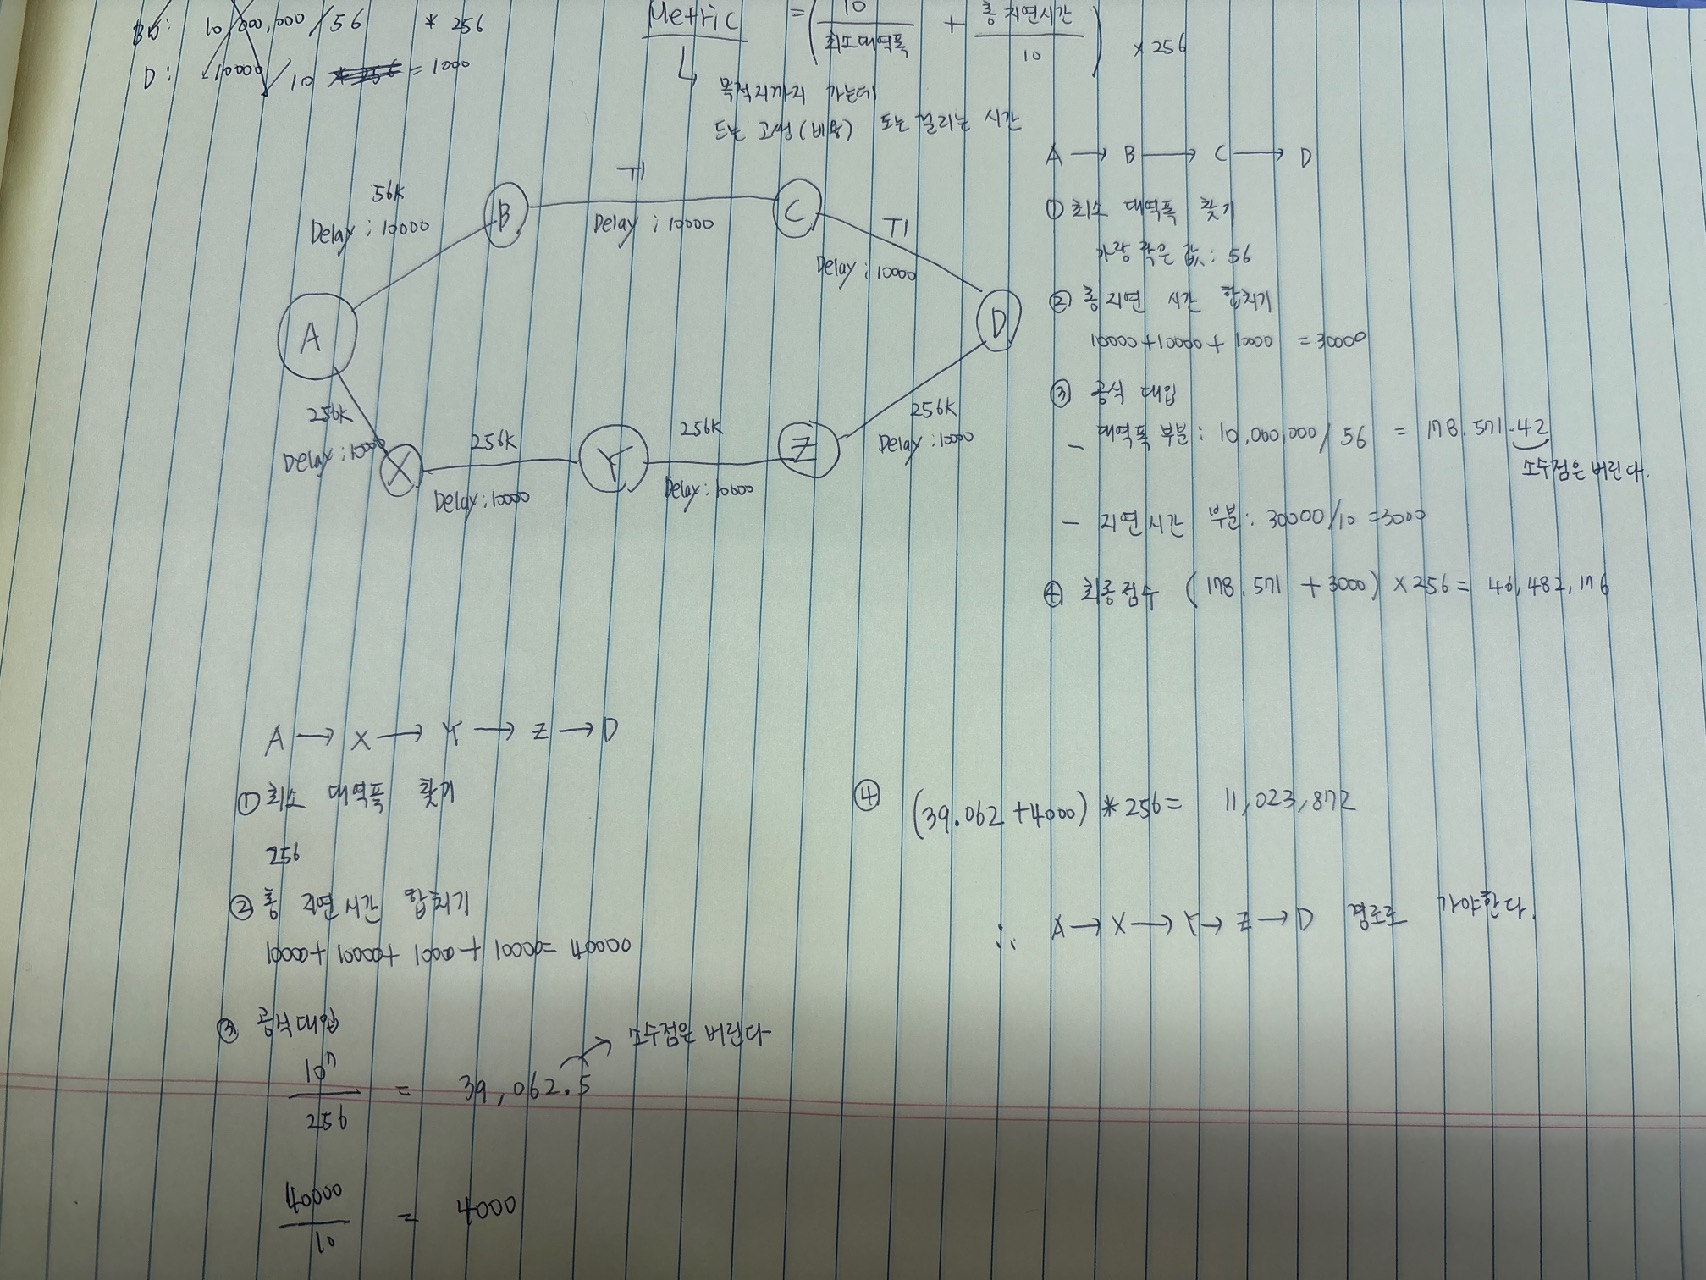 BD: 10,000,000/56 * 256
D: 10000/10 = 1000
Metric = (10/최소대역폭 + 총 지연시간/10) × 256
목적지까지 가는데
드는 고생(비용) 또는 걸리는 시간
56K
Delay: 10000
T1
Delay: 10000
T1
Delay: 10000
A
B
C
D
256K
Delay: 10000
X
256K
Delay: 10000
Y
256K
Delay: 10000
Z
256K
Delay: 10000
A → B → C → D
① 최소 대역폭 찾기
가장 작은 값: 56
② 총 지연 시간 합치기
10000+10000+10000 = 30000
③ 공식 대입
- 대역폭 부분: 10,000,000/56 = 178.571.42
소수점은 버린다.
- 지연시간 부분: 30000/10=3000
④ 최종점수 (178.571 + 3000) × 256 = 46,482,176
A → X → Y → Z → D
① 최소 대역폭 찾기
256
② 총 지연시간 합치기
10000+10000+10000+10000=40000
③ 공식대입
10⁷/256 = 39,062.5 → 소수점은 버린다
40000/10 = 4000
④ (39.062+4000) * 256 = 11,023,872
∴ A → X → Y → Z → D 경로로 가야한다.